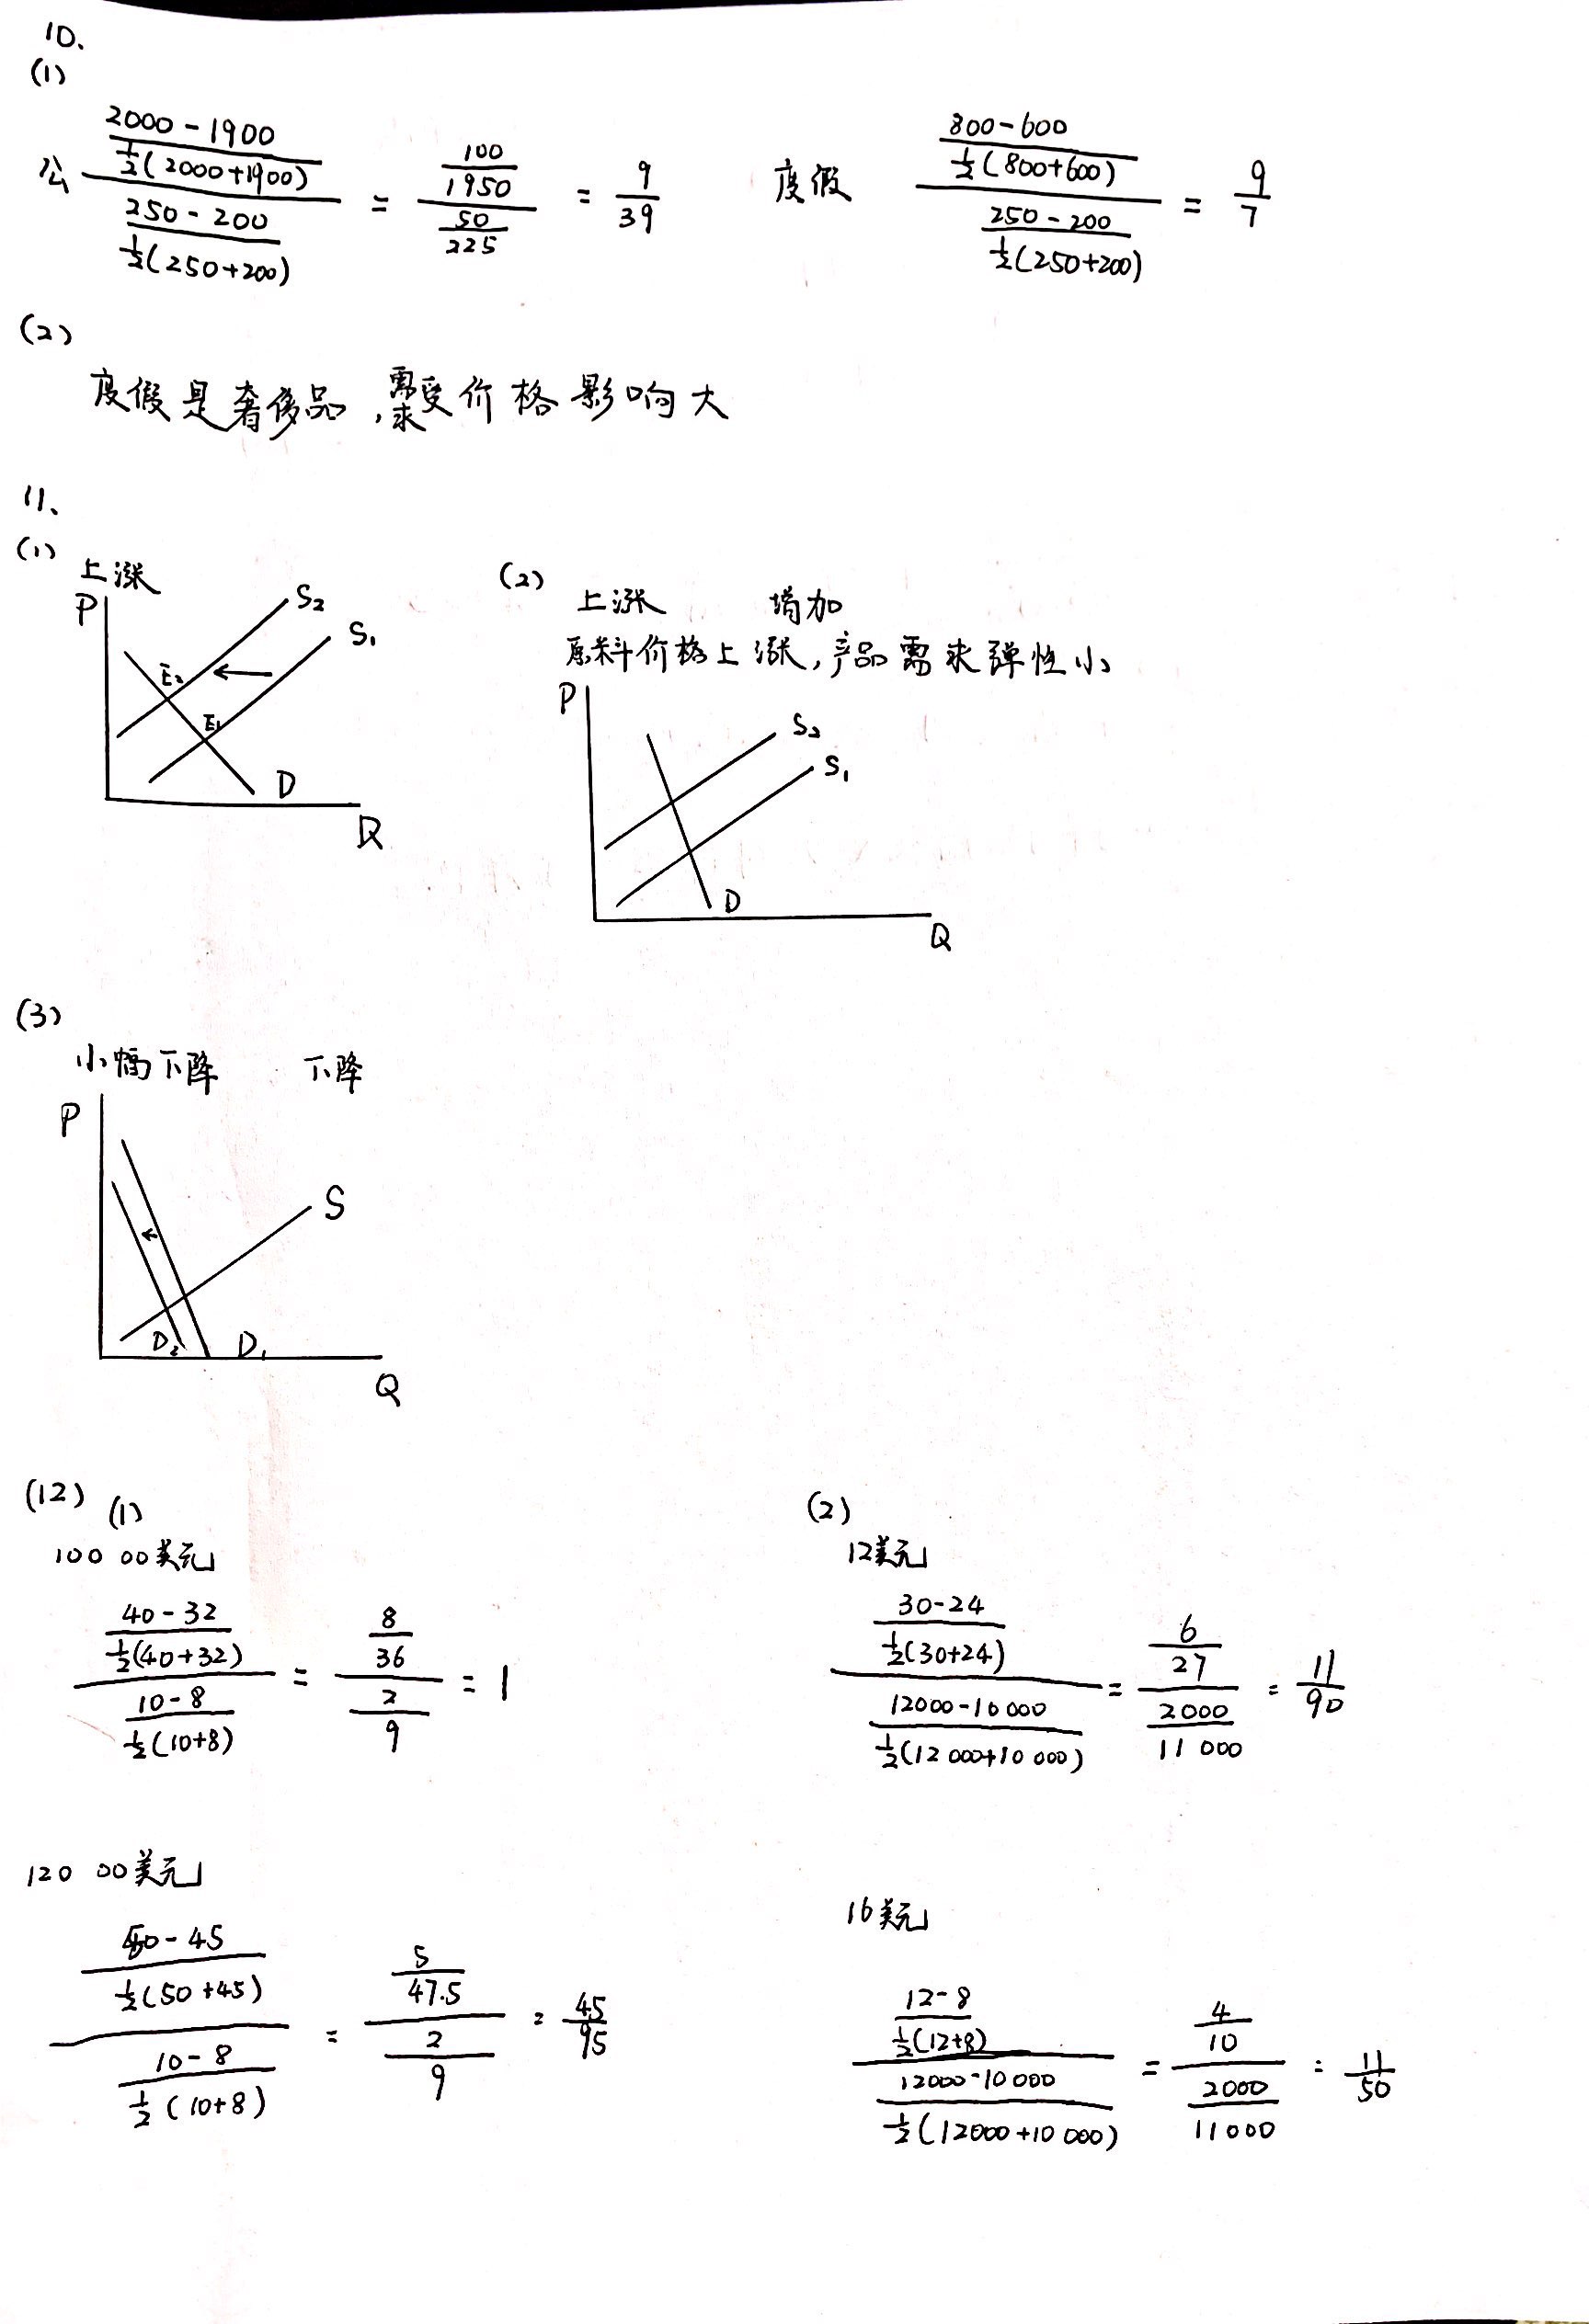 10、
(1)
公 \frac{\frac{2000-1900}{\frac{1}{2}(2000+1900)}}{\frac{250-200}{\frac{1}{2}(250+200)}} = \frac{\frac{100}{1950}}{\frac{50}{225}} = \frac{9}{39} 度假 \frac{\frac{800-600}{\frac{1}{2}(800+600)}}{\frac{250-200}{\frac{1}{2}(250+200)}} = \frac{9}{7}
(2)
度假是奢侈品,需求受价格影响大
11、
(1)
上涨
P S₂ S₁ E₂ E₁ D Q
(2)
上涨 增加
原料价格上涨,产品需求弹性小
P S₂ S₁ D Q
(3)
小幅下降 下降
P S D₂ D₁ Q
(12) (1)
100 00美元
\frac{\frac{40-32}{\frac{1}{2}(40+32)}}{\frac{10-8}{\frac{1}{2}(10+8)}} = \frac{\frac{8}{36}}{\frac{2}{9}} = 1
120 00美元
\frac{\frac{50-45}{\frac{1}{2}(50+45)}}{\frac{10-8}{\frac{1}{2}(10+8)}} = \frac{\frac{5}{47.5}}{\frac{2}{9}} = \frac{45}{95}
(2)
12美元
\frac{\frac{30-24}{\frac{1}{2}(30+24)}}{\frac{12000-10000}{\frac{1}{2}(12000+10000)}} = \frac{\frac{6}{27}}{\frac{2000}{11000}} = \frac{11}{90}
16美元
\frac{\frac{12-8}{\frac{1}{2}(12+8)}}{\frac{12000-10000}{\frac{1}{2}(12000+10000)}} = \frac{\frac{4}{10}}{\frac{2000}{11000}} = \frac{11}{50}